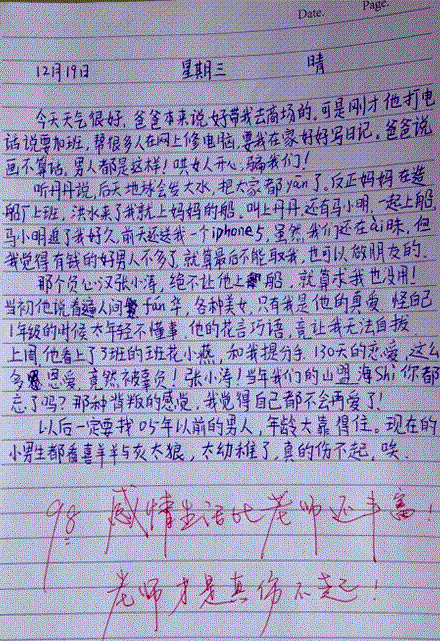 Date.
Page.
12月19日 星期三 晴
今天天气很好,爸爸本来说好带我去商场的,可是刚才他打电
话说要加班,帮很多人在网上修电脑,要我在家好好写日记。爸爸说
画不算话,男人都是这样!哄女人开心,骗我们!
听丹丹说,后天地球会发大水,把大家都yān了,反正妈妈在造
船厂上班,洪水来了我就上妈妈的船。叫上丹丹,还有马小明,一起上船,
马小明追了我好久,前天还送我一个iphone5,虽然我们还在ài昧,但
我觉得有钱的好男人不多了,就算最后不能取我,也可以做朋友的。
那个负心汉张小涛,绝不让他上船,就算求我也没用!
当初他说看遍人间fán华,各种美女,只有我是他的真爱,怪自己
1年级的时候太年轻不懂事,他的花言巧语,竟让我无法自拔
上周他看上了3班的班花小燕,和我提分手,130天的恋爱,这么
多恩爱,竟然被辜负!张小涛!当年我们的山盟海Shi你都
忘了吗?那种背叛的感觉,我觉得自己都不会再爱了!
以后一定要找05年以前的男人,年龄大靠得住。现在的
小男生都看喜羊羊与灰太狼,太幼稚了,真的伤不起,唉.
98 感情生活比老师还丰富!
老师才是真伤不起!